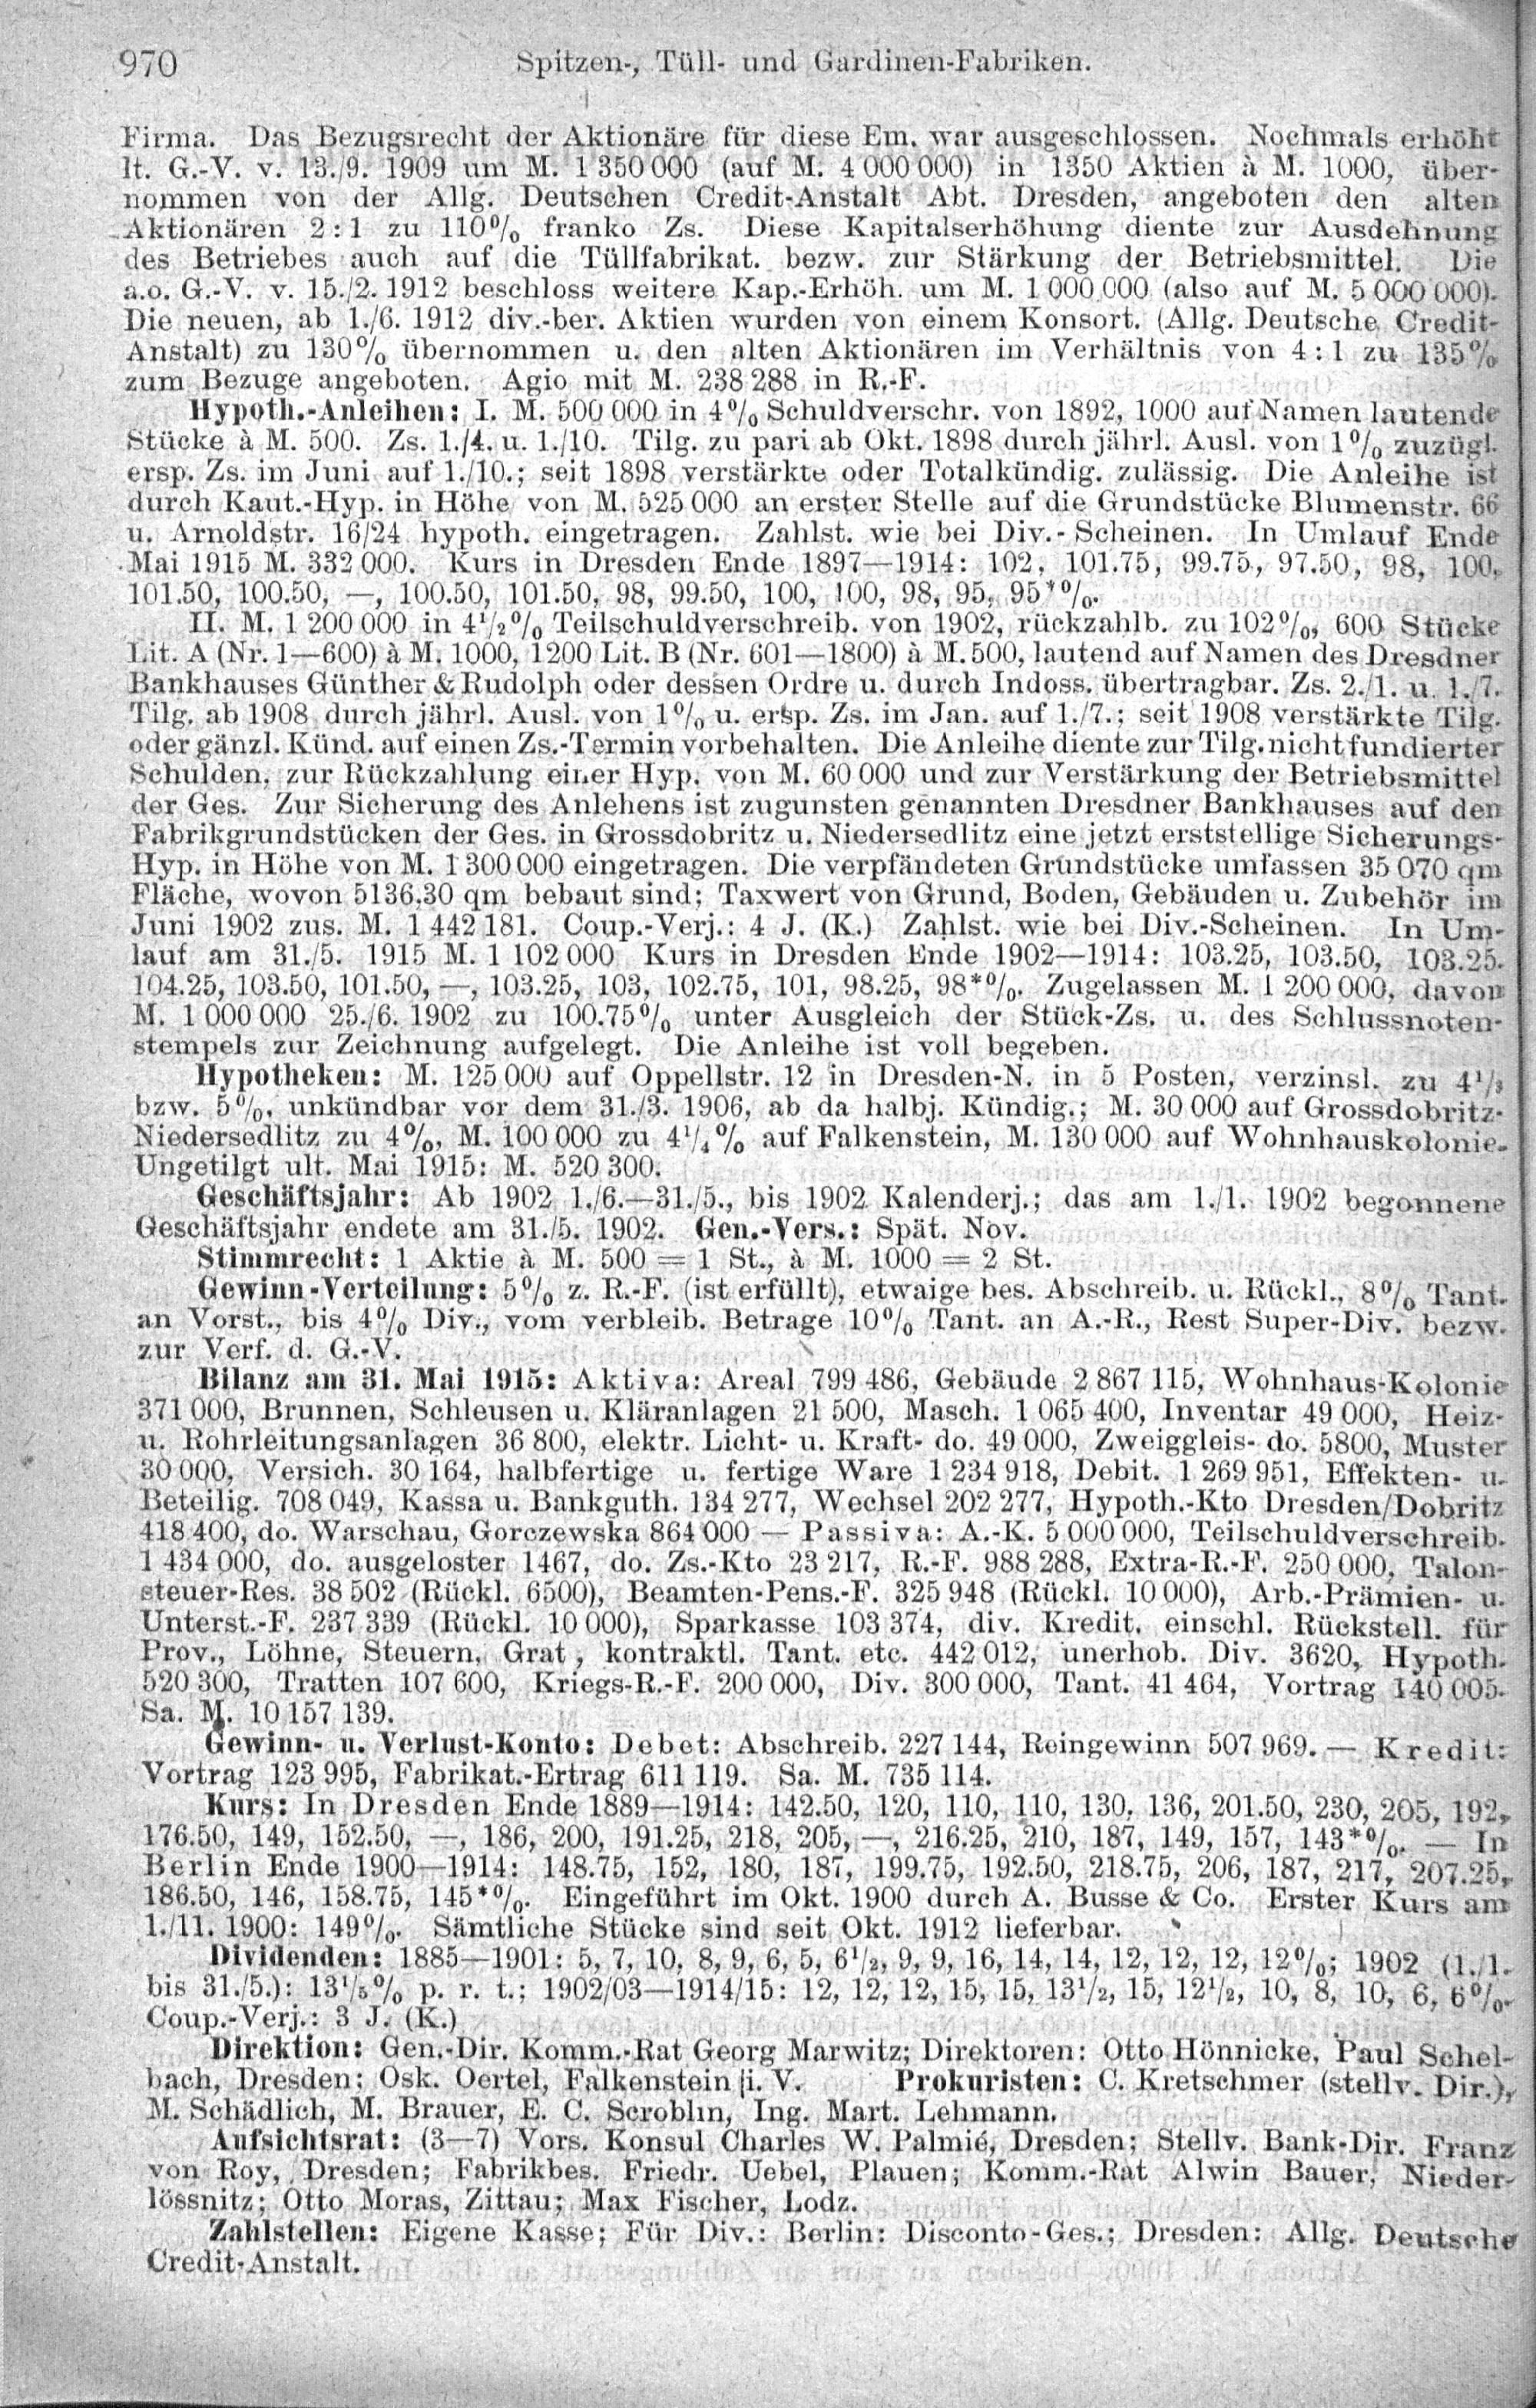 970 Spitzen-, Tüll- und Gardinen-Fabriken.
Firma. Das Bezugsrecht der Aktionäre für diese Em. war ausgeschlossen. Nochmals erhöht
lt. G.-V. v. 13./9. 1909 um M. 1 350 000 (auf M. 4 000 000) in 1350 Aktien à M. 1000, über-
nommen von der Allg. Deutschen Credit-Anstalt Abt. Dresden, angeboten den alten
Aktionären 2 : 1 zu 110% franko Zs. Diese Kapitalserhöhung diente zur Ausdehnung
des Betriebes auch auf die Tüllfabrikat. bezw. zur Stärkung der Betriebsmittel. Die
a.o. G.-V. v. 15./2. 1912 beschloss weitere Kap.-Erhöh. um M. 1 000 000 (also auf M. 5 000 000).
Die neuen, ab 1./6. 1912 div.-ber. Aktien wurden von einem Konsort. (Allg. Deutsche Credit-
Anstalt) zu 130% übernommen u. den alten Aktionären im Verhältnis von 4 : 1 zu 135%
zum Bezuge angeboten. Agio mit M. 238 288 in R.-F.
Hypoth.-Anleihen: I. M. 500 000 in 4% Schuldverschr. von 1892, 1000 auf Namen lautende
Stücke à M. 500. Zs. 1./4. u. 1./10. Tilg. zu pari ab Okt. 1898 durch jährl. Ausl. von 1% zuzügl.
ersp. Zs. im Juni auf 1./10.; seit 1898 verstärkte oder Totalkündig. zulässig. Die Anleihe ist
durch Kaut.-Hyp. in Höhe von M. 525 000 an erster Stelle auf die Grundstücke Blumenstr. 66
u. Arnoldstr. 16/24 hypoth. eingetragen. Zahlst. wie bei Div.-Scheinen. In Umlauf Ende
Mai 1915 M. 332 000. Kurs in Dresden Ende 1897—1914: 102, 101.75, 99.75, 97.50, 98, 100,
101.50, 100.50, —, 100.50, 101.50, 98, 99.50, 100, 100, 98, 95, 95*%.
II. M. 1 200 000 in 4½% Teilschuldverschreib. von 1902, rückzahlb. zu 102%, 600 Stücke
Lit. A (Nr. 1—600) à M. 1000, 1200 Lit. B (Nr. 601—1800) à M. 500, lautend auf Namen des Dresdner
Bankhauses Günther & Rudolph oder dessen Ordre u. durch Indoss. übertragbar. Zs. 2./1. u. 1./7.
Tilg. ab 1908 durch jährl. Ausl. von 1% u. ersp. Zs. im Jan. auf 1./7.; seit 1908 verstärkte Tilg.
oder gänzl. Künd. auf einen Zs.-Termin vorbehalten. Die Anleihe diente zur Tilg. nicht fundierter
Schulden, zur Rückzahlung einer Hyp. von M. 60 000 und zur Verstärkung der Betriebsmittel
der Ges. Zur Sicherung des Anlehens ist zugunsten genannten Dresdner Bankhauses auf den
Fabrikgrundstücken der Ges. in Grossdobritz u. Niedersedlitz eine jetzt erststellige Sicherungs-
Hyp. in Höhe von M. 1 300 000 eingetragen. Die verpfändeten Grundstücke umfassen 35 070 qm
Fläche, wovon 5136,30 qm bebaut sind; Taxwert von Grund, Boden, Gebäuden u. Zubehör im
Juni 1902 zus. M. 1 442 181. Coup.-Verj.: 4 J. (K.) Zahlst. wie bei Div.-Scheinen. In Um-
lauf am 31./5. 1915 M. 1 102 000 Kurs in Dresden Ende 1902—1914: 103.25, 103.50, 103.25.
104.25, 103.50, 101.50, —, 103.25, 103, 102.75, 101, 98.25, 98*%. Zugelassen M. 1 200 000, davon
M. 1 000 000 25./6. 1902 zu 100.75% unter Ausgleich der Stück-Zs. u. des Schlussnoten-
stempels zur Zeichnung aufgelegt. Die Anleihe ist voll begeben.
Hypotheken: M. 125 000 auf Oppellstr. 12 in Dresden-N. in 5 Posten, verzinsl. zu
bzw. 5%, unkündbar vor dem 31./3. 1906, ab da halbj. Kündig.; M. 30 000 auf Grossdobritz-
Niedersedlitz zu 4%, M. 100 000 zu 4¼% auf Falkenstein, M. 130 000 auf Wohnhauskolonie.
Ungetilgt ult. Mai 1915: M. 520 300.
Geschäftsjahr: Ab 1902 1./6.—31./5., bis 1902 Kalenderj.; das am 1./1. 1902 begonnene
Geschäftsjahr endete am 31./5. 1902. Gen.-Vers.: Spät. Nov.
Stimmrecht: 1 Aktie à M. 500 = 1 St., à M. 1000 = 2 St.
Gewinn-Verteilung: 5% z. R.-F. (ist erfüllt), etwaige bes. Abschreib. u. Rückl., 8% Tant.
an Vorst., bis 4% Div., vom verbleib. Betrage 10% Tant. an A.-R., Rest Super-Div. bezw.
zur Verf. d. G.-V.
Bilanz am 31. Mai 1915: Aktiva: Areal 799 486, Gebäude 2 867 115, Wohnhaus-Kolonie
371 000, Brunnen, Schleusen u. Kläranlagen 21 500, Masch. 1 065 400, Inventar 49 000, Heiz-
u. Rohrleitungsanlagen 36 800, elektr. Licht- u. Kraft- do. 49 000, Zweiggleis- do. 5800, Muster
30 000, Versich. 30 164, halbfertige u. fertige Ware 1 234 918, Debit. 1 269 951, Effekten- u.
Beteilig. 708 049, Kassa u. Bankguth. 134 277, Wechsel 202 277, Hypoth.-Kto Dresden/Dobritz
418 400, do. Warschau, Gorczewska 864 000 — Passiva: A.-K. 5 000 000, Teilschuldverschreib.
1 434 000, do. ausgeloster 1467, do. Zs.-Kto 23 217, R.-F. 988 288, Extra-R.-F. 250 000, Talon-
steuer-Res. 38 502 (Rückl. 6500), Beamten-Pens.-F. 325 948 (Rückl. 10 000), Arb.-Prämien- u.
Unterst.-F. 237 339 (Rückl. 10 000), Sparkasse 103 374, div. Kredit. einschl. Rückstell. für
Prov., Löhne, Steuern, Grat, kontraktl. Tant. etc. 442 012, unerhob. Div. 3620, Hypoth.
520 300, Tratten 107 600, Kriegs-R.-F. 200 000, Div. 300 000, Tant. 41 464, Vortrag 140 005.
Sa. M. 10 157 139.
Gewinn- u. Verlust-Konto: Debet: Abschreib. 227 144, Reingewinn 507 969. — Kredit:
Vortrag 123 995, Fabrikat.-Ertrag 611 119. Sa. M. 735 114.
Kurs: In Dresden Ende 1889—1914: 142.50, 120, 110, 110, 130, 136, 201.50, 230, 205, 192,
176.50, 149, 152.50, —, 186, 200, 191.25, 218, 205, —, 216.25, 210, 187, 149, 157, 143*%. — In
Berlin Ende 1900—1914: 148.75, 152, 180, 187, 199.75, 192.50, 218.75, 206, 187, 217, 207.25,
186.50, 146, 158.75, 145*%. Eingeführt im Okt. 1900 durch A. Busse & Co. Erster Kurs am
1./11. 1900: 149%. Sämtliche Stücke sind seit Okt. 1912 lieferbar.
Dividenden: 1885—1901: 5, 7, 10, 8, 9, 6, 5, 6½, 9, 9, 16, 14, 14, 12, 12, 12, 12%; 1902 (1./1.
bis 31./5.): 13⅕% p. r. t.; 1902/03—1914/15: 12, 12, 12, 15, 15, 13½, 15, 12½, 10, 8, 10, 6, 6%.
Coup.-Verj.: 3 J. (K.)
Direktion: Gen.-Dir. Komm.-Rat Georg Marwitz; Direktoren: Otto Hönnicke, Paul Schel-
bach, Dresden; Osk. Oertel, Falkenstein i. V. Prokuristen: C. Kretschmer (stellv. Dir.),
M. Schädlich, M. Brauer, E. C. Scroblin, Ing. Mart. Lehmann.
Aufsichtsrat: (3—7) Vors. Konsul Charles W. Palmié, Dresden; Stellv. Bank-Dir. Franz
von Roy, Dresden; Fabrikbes. Friedr. Uebel, Plauen; Komm.-Rat Alwin Bauer, Nieder-
lössnitz; Otto Moras, Zittau; Max Fischer, Lodz.
Zahlstellen: Eigene Kasse; Für Div.: Berlin: Disconto-Ges.; Dresden: Allg. Deutsche
Credit-Anstalt.